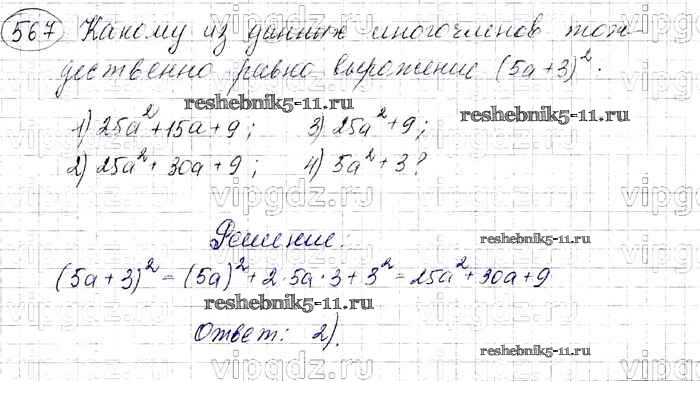 567 Какому из данных многочленов тож-
дественно равно выражение (5a+3)².
reshebnik5-11.ru
reshebnik5-11.ru
1) 25a²+15a+9; 3) 25a²+9;
2) 25a²+30a+9; 4) 5a²+3?
vipgdz.ru
Решение:
reshebnik5-11.ru
(5a+3)² = (5a)²+2·5a·3+3² = 25a²+30a+9
reshebnik5-11.ru
Ответ: 2).
reshebnik5-11.ru
vipgdz.ru